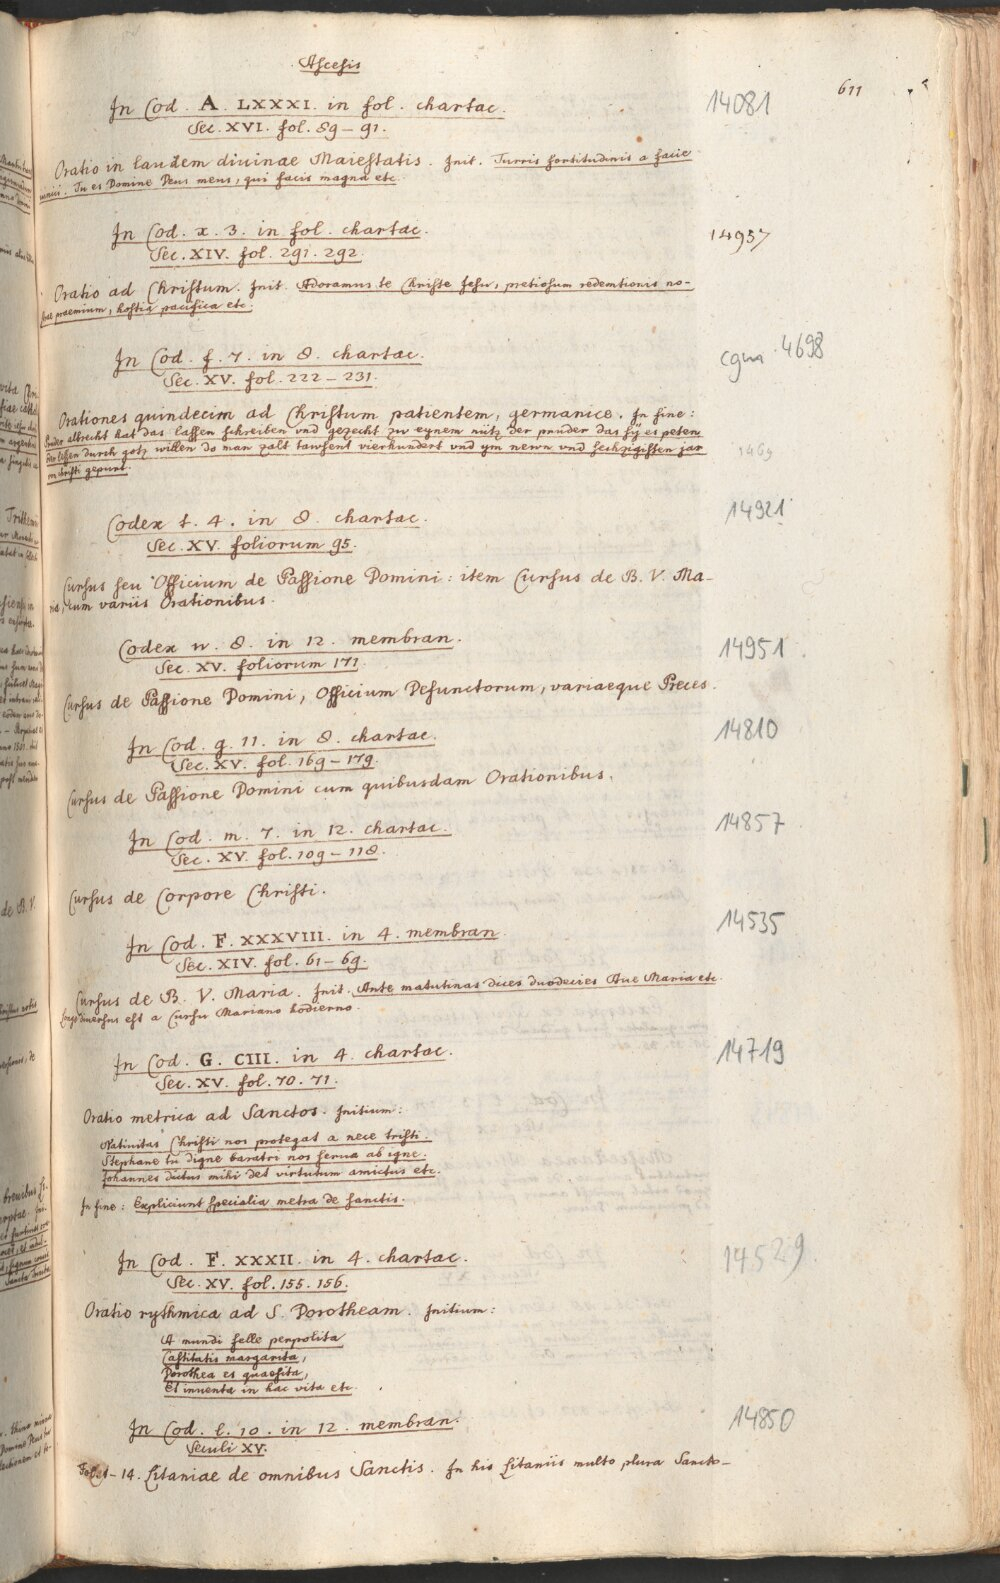 Ascesis
611
In Cod. A. LXXXI. in fol. chartac.
14081
Sec. XVI. fol. 89-91.
Oratio in laudem divinae Maiestatis. Init. Turris fortitudinis a facie
inimici. Tu es Domine Deus meus, qui facis magna etc.
In Cod. x. 3. in fol. chartac.
14957
Sec. XIV. fol. 291. 292.
Oratio ad Christum. Init. Adoramus te Christe Jesu, pretiosum redemtionis no-
strae praemium, hostia pacifica etc.
In Cod. f. 7. in 8. chartac.
cgm 4698
Sec. XV. fol. 222-231.
Orationes quindecim ad Christum patientem, germanice. In fine:
Bruder albrecht hat das lassen schreiben vnd gezecht zu eynem nütz der prüder das sy es peten
oder lessen durch gotz willen do man zalt tawsent vierhundert vnd ym newn vnd sechzigisten jar
1469
cristi gepurt.
Codex t. 4. in 8. chartac.
14921
Sec. XV. foliorum 95.
Cursus seu Officium de Passione Domini: item Cursus de B. V. Ma-
ria, cum variis Orationibus.
Codex w. 8. in 12. membran.
14951
Sec. XV. foliorum 171.
Cursus de Passione Domini, Officium Defunctorum, variaeque Preces.
In Cod. g. 11. in 8. chartac.
14810
Sec. XV. fol. 169-179.
Cursus de Passione Domini cum quibusdam Orationibus.
In Cod. m. 7. in 12. chartac.
14857
Sec. XV. fol. 109-118.
Cursus de Corpore Christi.
In Cod. F. XXXVIII. in 4. membran.
14535
Sec. XIV. fol. 61-69.
Cursus de B. V. Maria. Init. Ante matutinas dices duodecies Ave Maria etc.
Longe diversus est a Cursu Mariano hodierno.
In Cod. G. CIII. in 4. chartac.
14719
Sec. XV. fol. 70. 71.
Oratio metrica ad Sanctos. Initium:
Nativitas Christi nos protegat a nece tristi.
Stephane tu digne baratri nos serua ab igne.
Johannes dictus mihi det virtutum amictus etc.
In fine: Expliciunt specialia metra de sanctis.
In Cod. F. XXXII. in 4. chartac.
14529
Sec. XV. fol. 155. 156.
Oratio rythmica ad S. Dorotheam. Initium:
A mundi felle perpolita
Castitatis margarita,
Dorothea es quaesita,
Et inuenta in hac vita etc.
In Cod. l. 10. in 12. membran.
14850
Seculi XV.
Fol. 1-14. Litaniae de omnibus Sanctis. In his Litaniis multo plura Sancto-